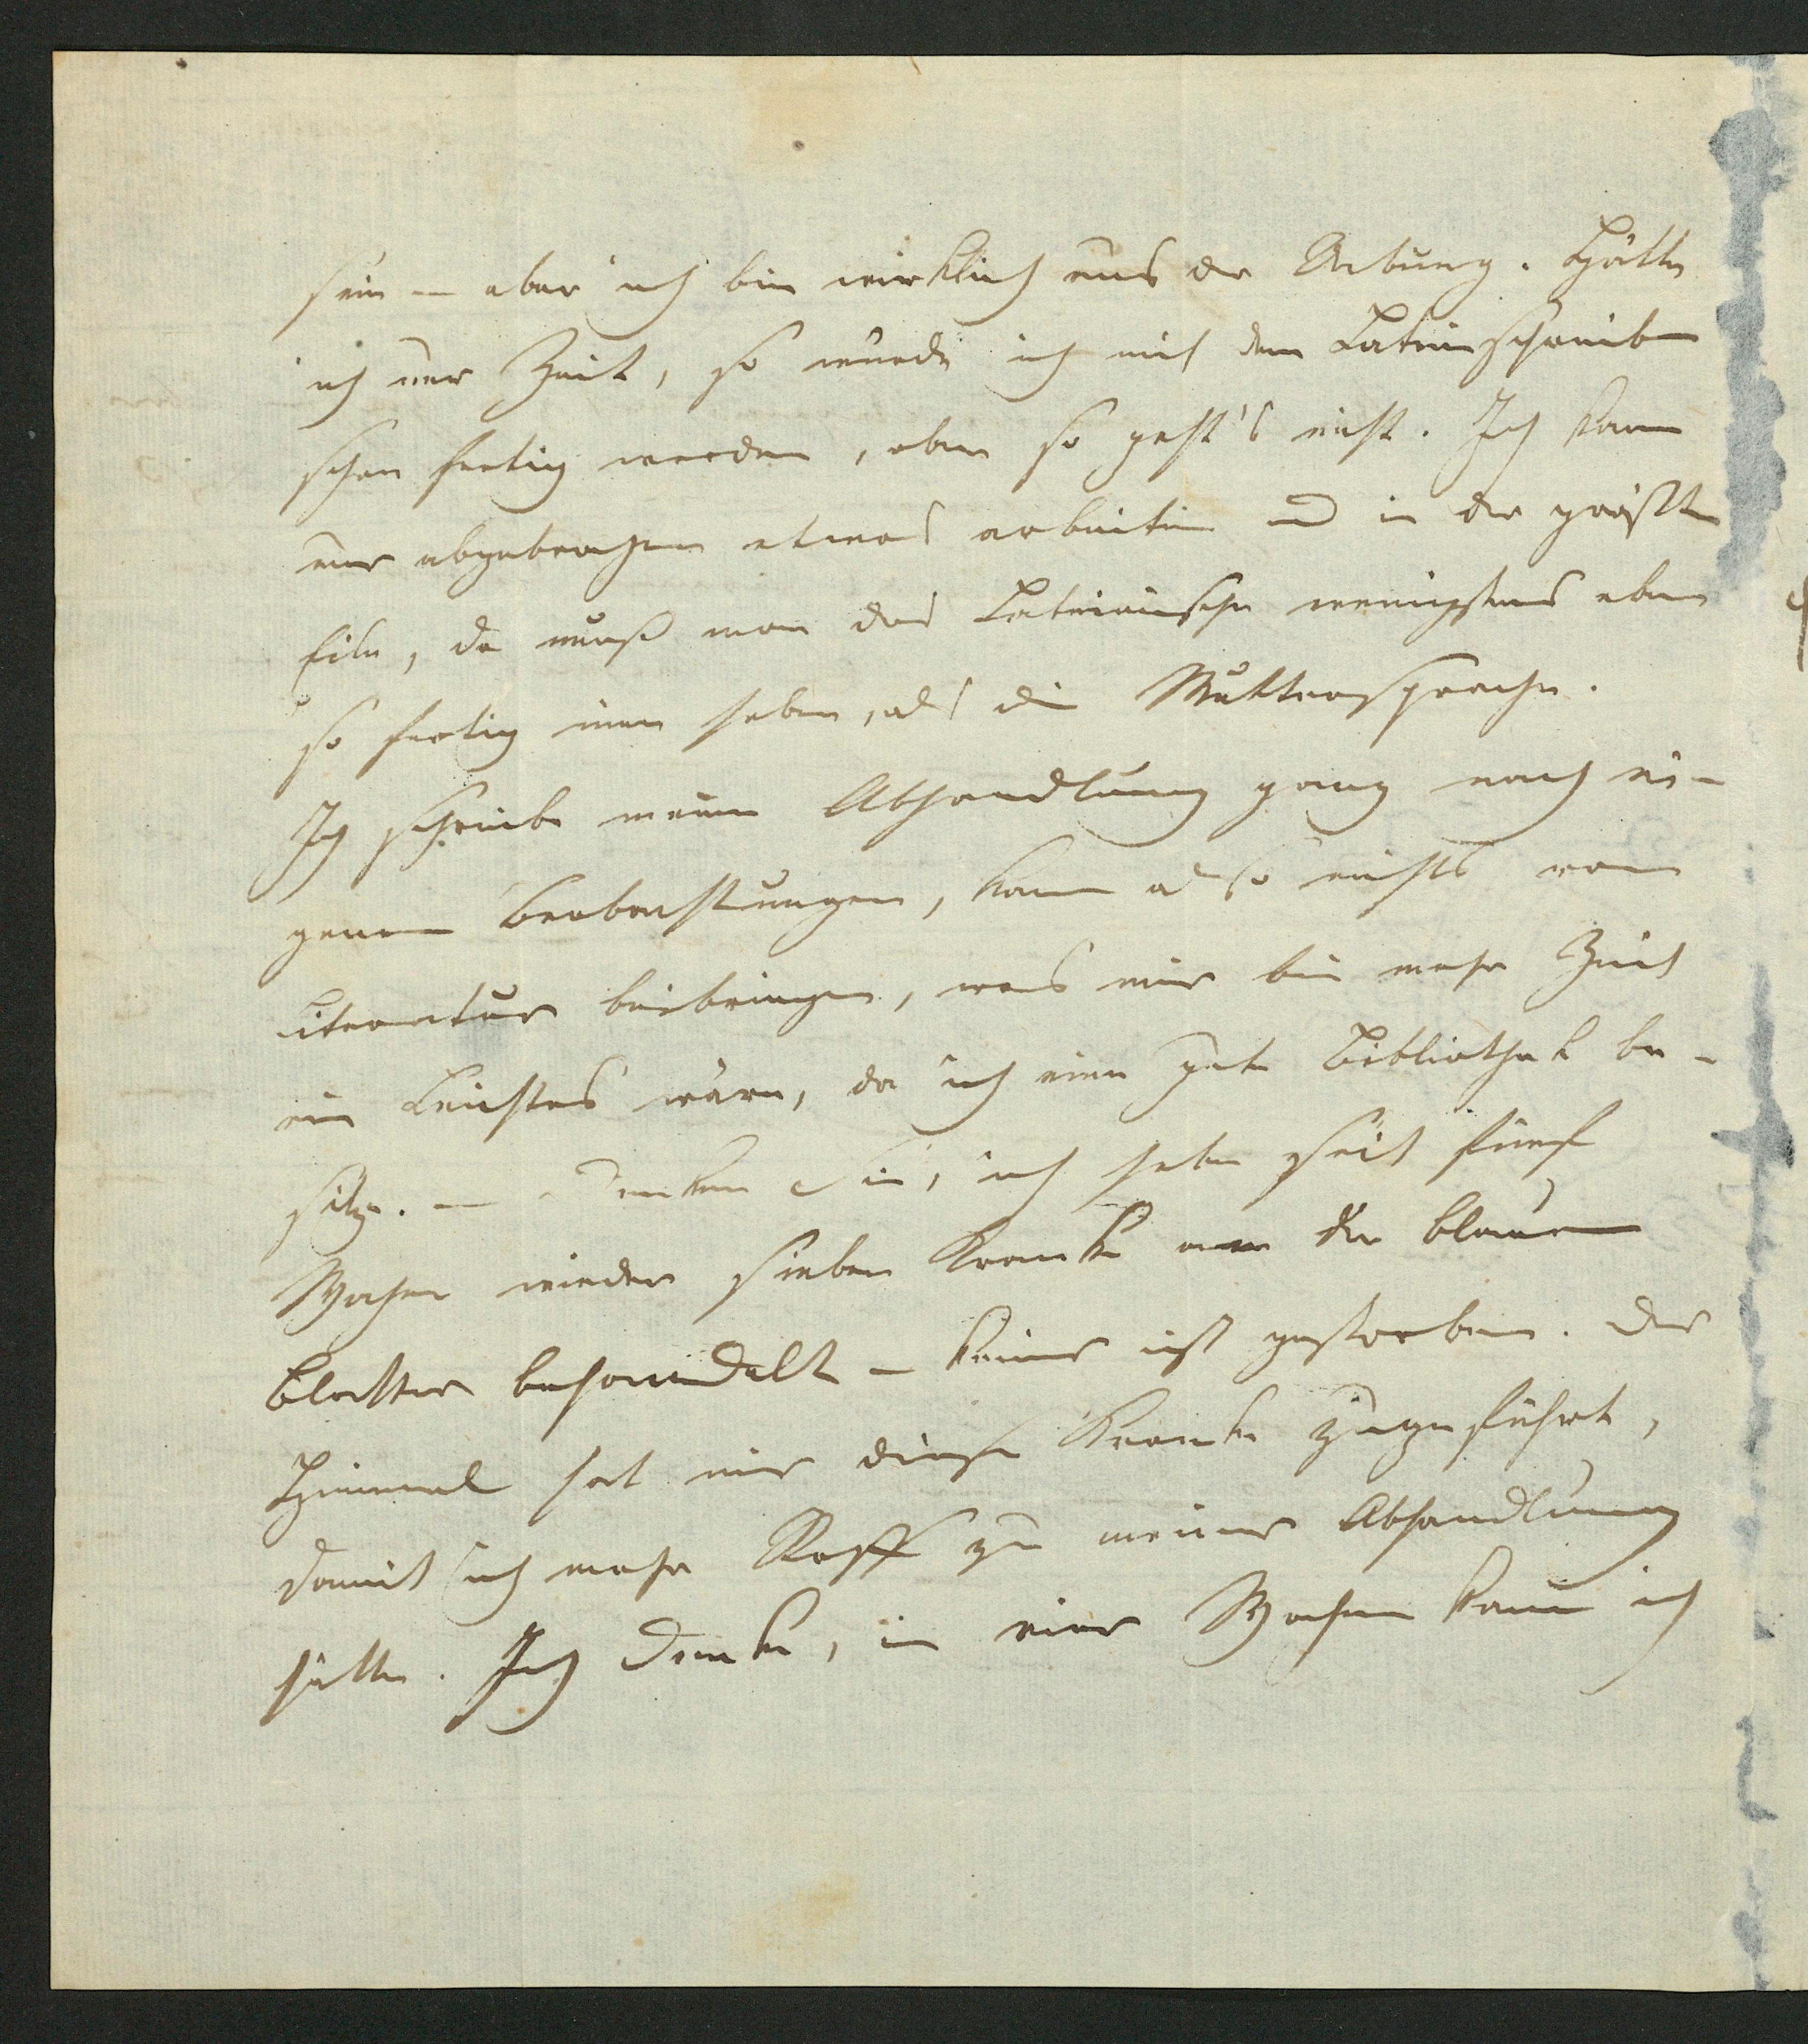 sein – aber ich bin wirklich aus der Uebung. Hätte
ich nur Zeit, so wurde ich mit dem Lateinschreiben
schon fertig werden, aber so geht's nicht. Ich kann
nur abgebrochen etwas arbeiten und in der größten
Eile, da muß man das Lateinische wenigstens eben
so fertig inne haben, als die Muttersprache.
Ich schreibe meine Abhandlung ganz nach ei-
genen Beobachtungen, kann also nichts von
Literatur beibringen, was mir bei mehr Zeit
ein Leichtes wäre, da ich eine gute Bibliothek be-
sitze. – Denken Sie, ich habe seit fünf
Wochen wieder sieben Kranke an der blauen
Blatter behandelt – keiner ist gestorben. Der
Himmel hat mir diese Kranke zugeführt,
damit ich mehr Stoff zu meiner Abhandlung
hätte. Ich denke, in vier Wochen kann ich